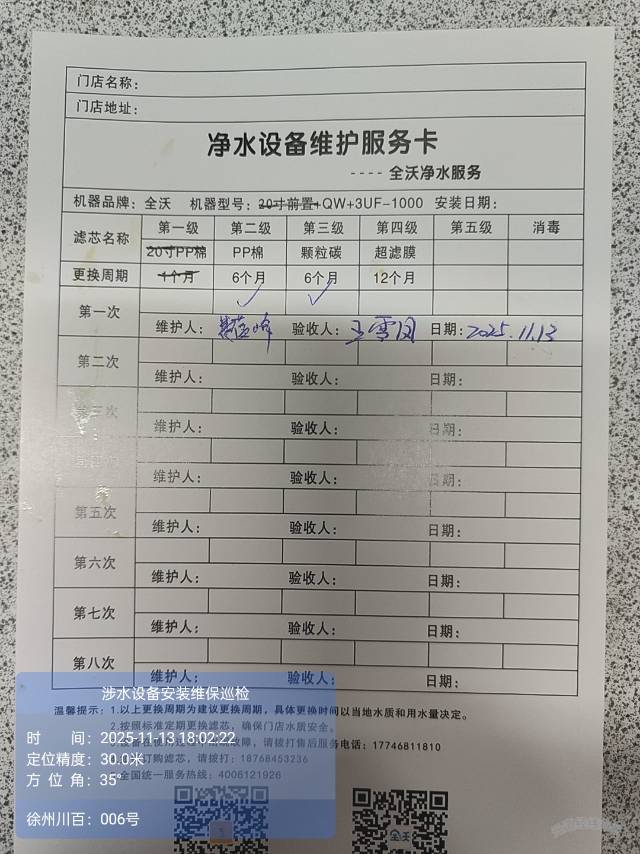 门店名称：
门店地址：
净水设备维护服务卡
---- 全沃净水服务
机器品牌：全沃 机器型号：20寸前置+QW+3UF-1000 安装日期：
滤芯名称 第一级 第二级 第三级 第四级 第五级 消毒
20寸PP棉 PP棉 颗粒碳 超滤膜
更换周期 1个月 6个月 6个月 12个月
第一次 ✓ ✓
维护人： 验收人：王雪凤 日期：2025.11.13
第二次
维护人： 验收人： 日期：
第三次
维护人： 验收人： 日期：
维护人： 验收人： 日期：
第五次
维护人： 验收人： 日期：
第六次
维护人： 验收人： 日期：
第七次
维护人： 验收人： 日期：
第八次
维护人： 验收人： 日期：
涉水设备安装维保巡检
温馨提示：1.以上更换周期为建议更换周期，具体更换时间以当地水质和用水量决定。
2.按照标准定期更换滤芯，确保门店水质安全。
时 间：2025-11-13 18:02:22
故障，请拨打售后服务电话：17746811810
定位精度：30.0米
订购滤芯，请拨打：18768453236
全国统一服务热线：4006121926
方 位 角：35°
徐州川百：006号
全沃